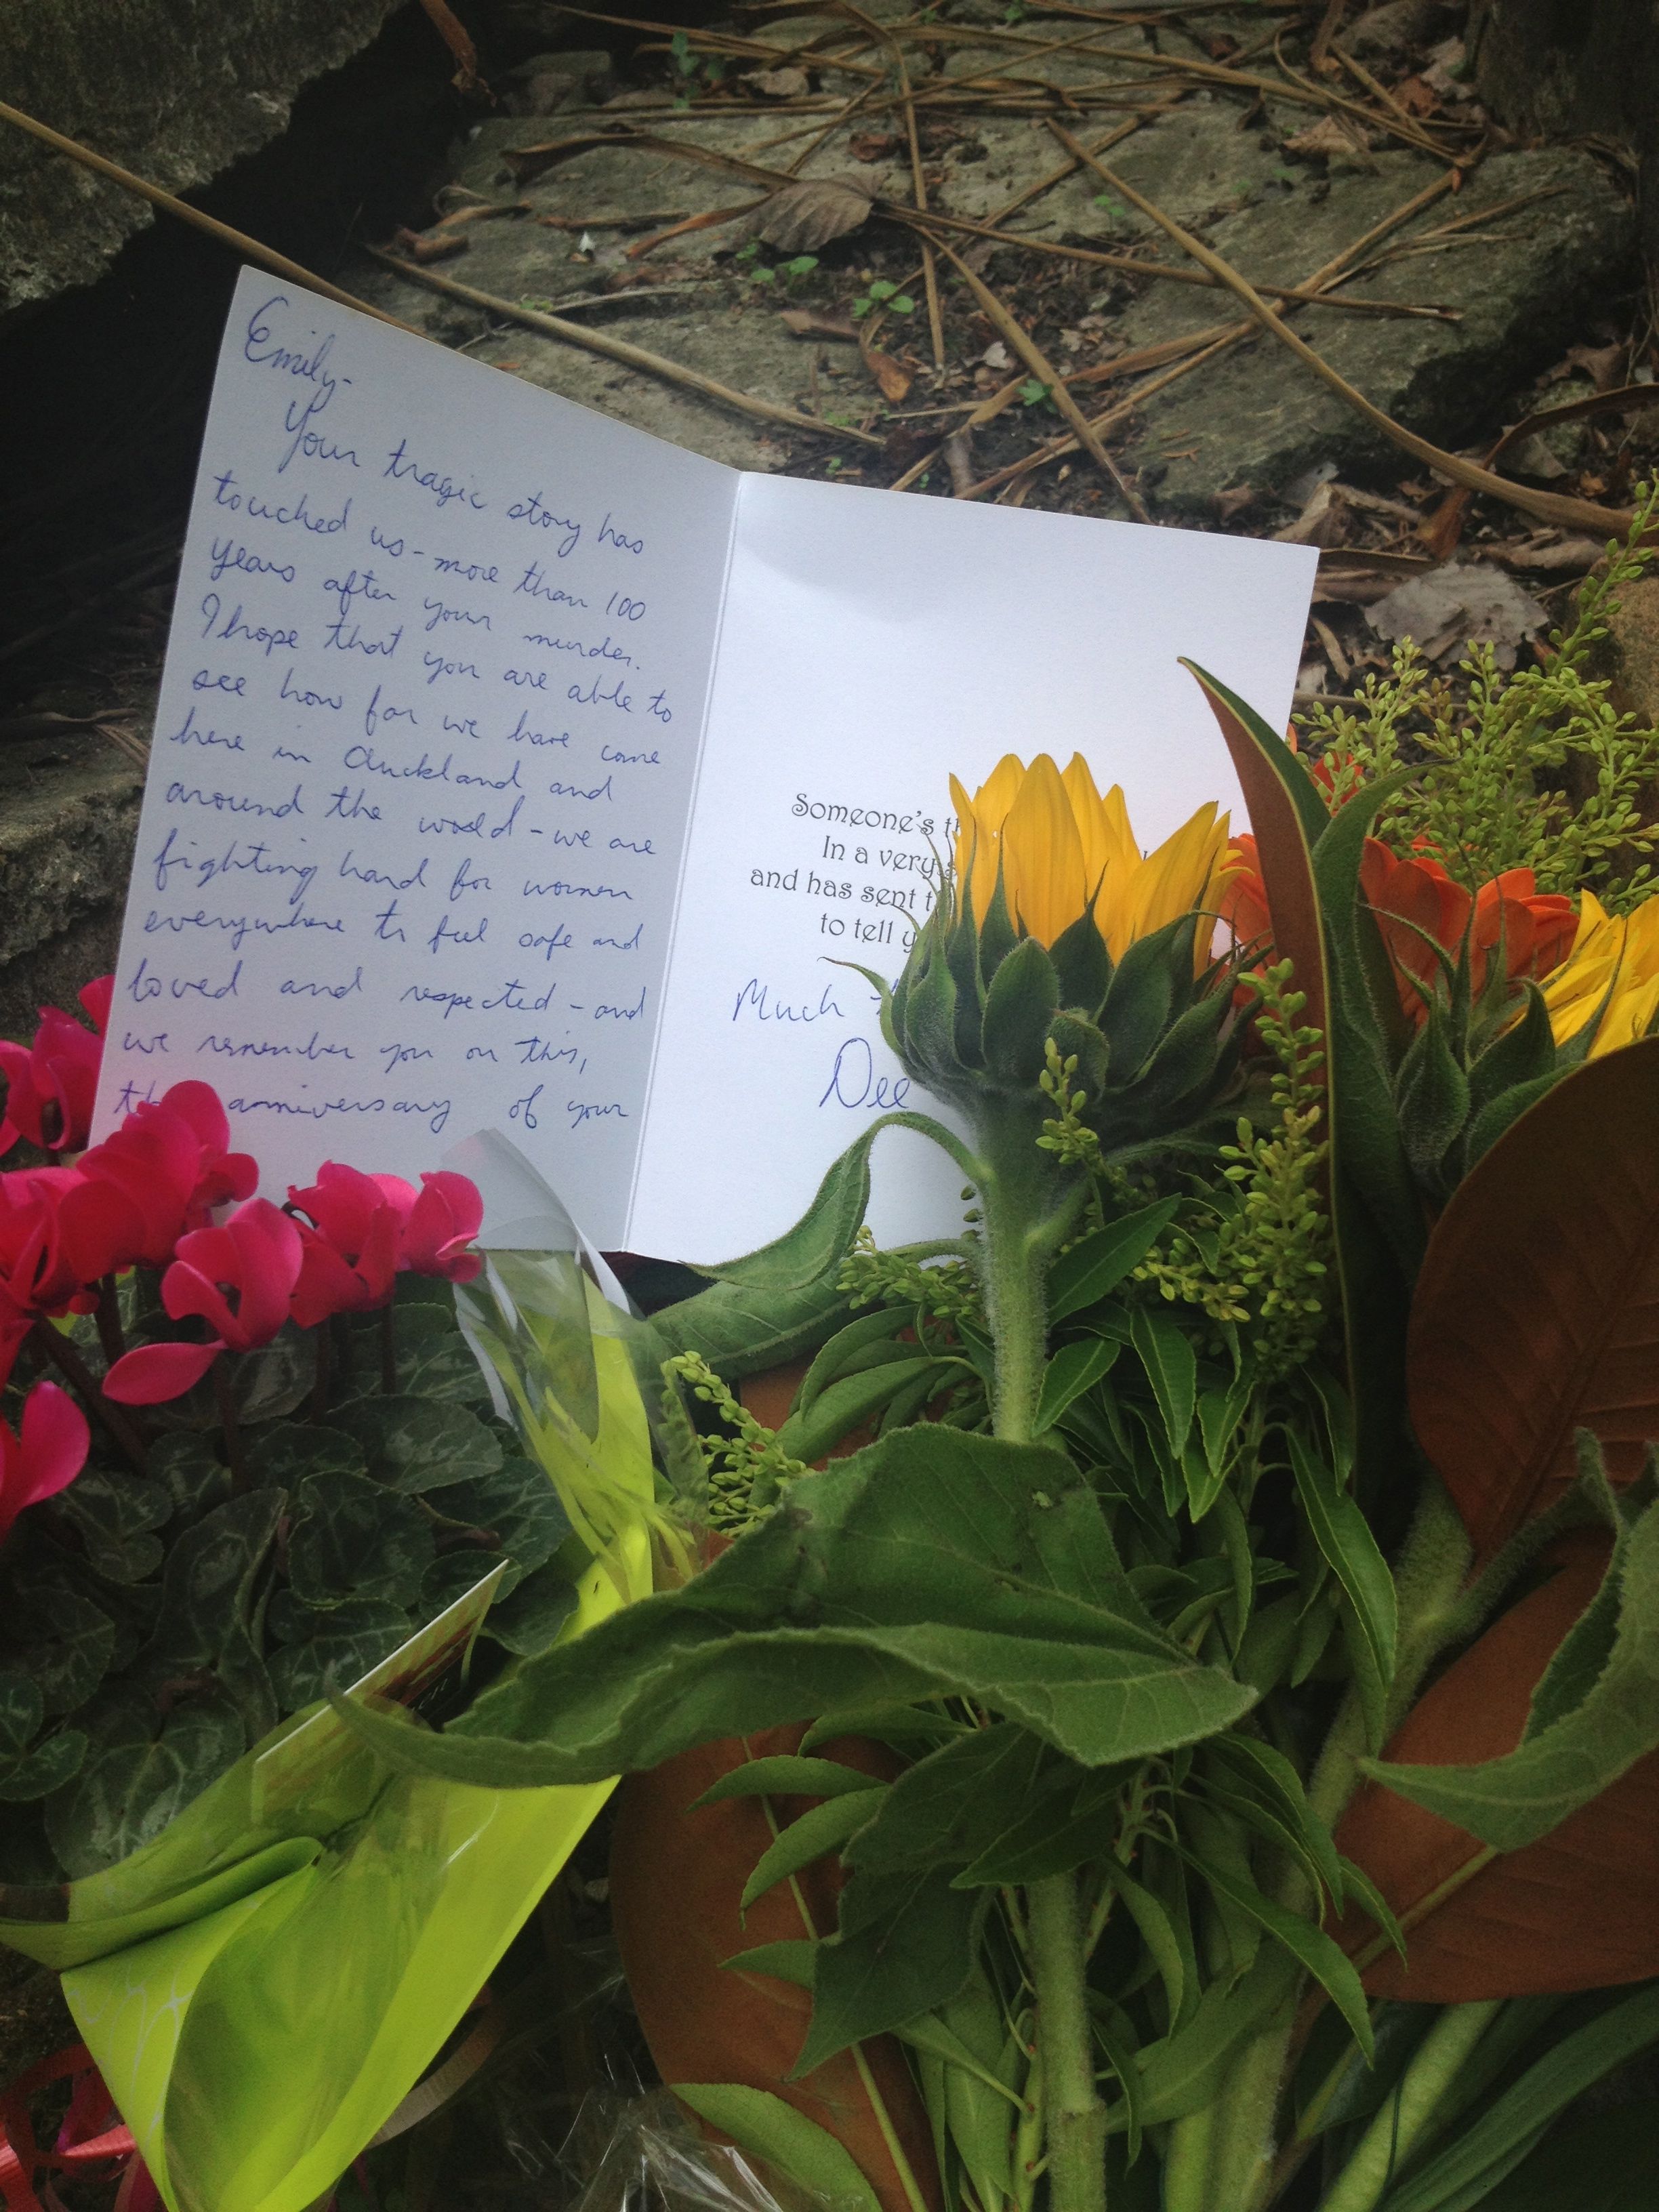 Emily-
Your tragic story has
touched us - more than 100
years after your murder.
I hope that you are able to
see how far we have come
here in Auckland and
around the world - we are
fighting hard for women
everywhere to feel safe and
loved and respected - and
we remember you on this,
the anniversary of your
Someone's
In a very
and has sent
to tell
Much
Dee